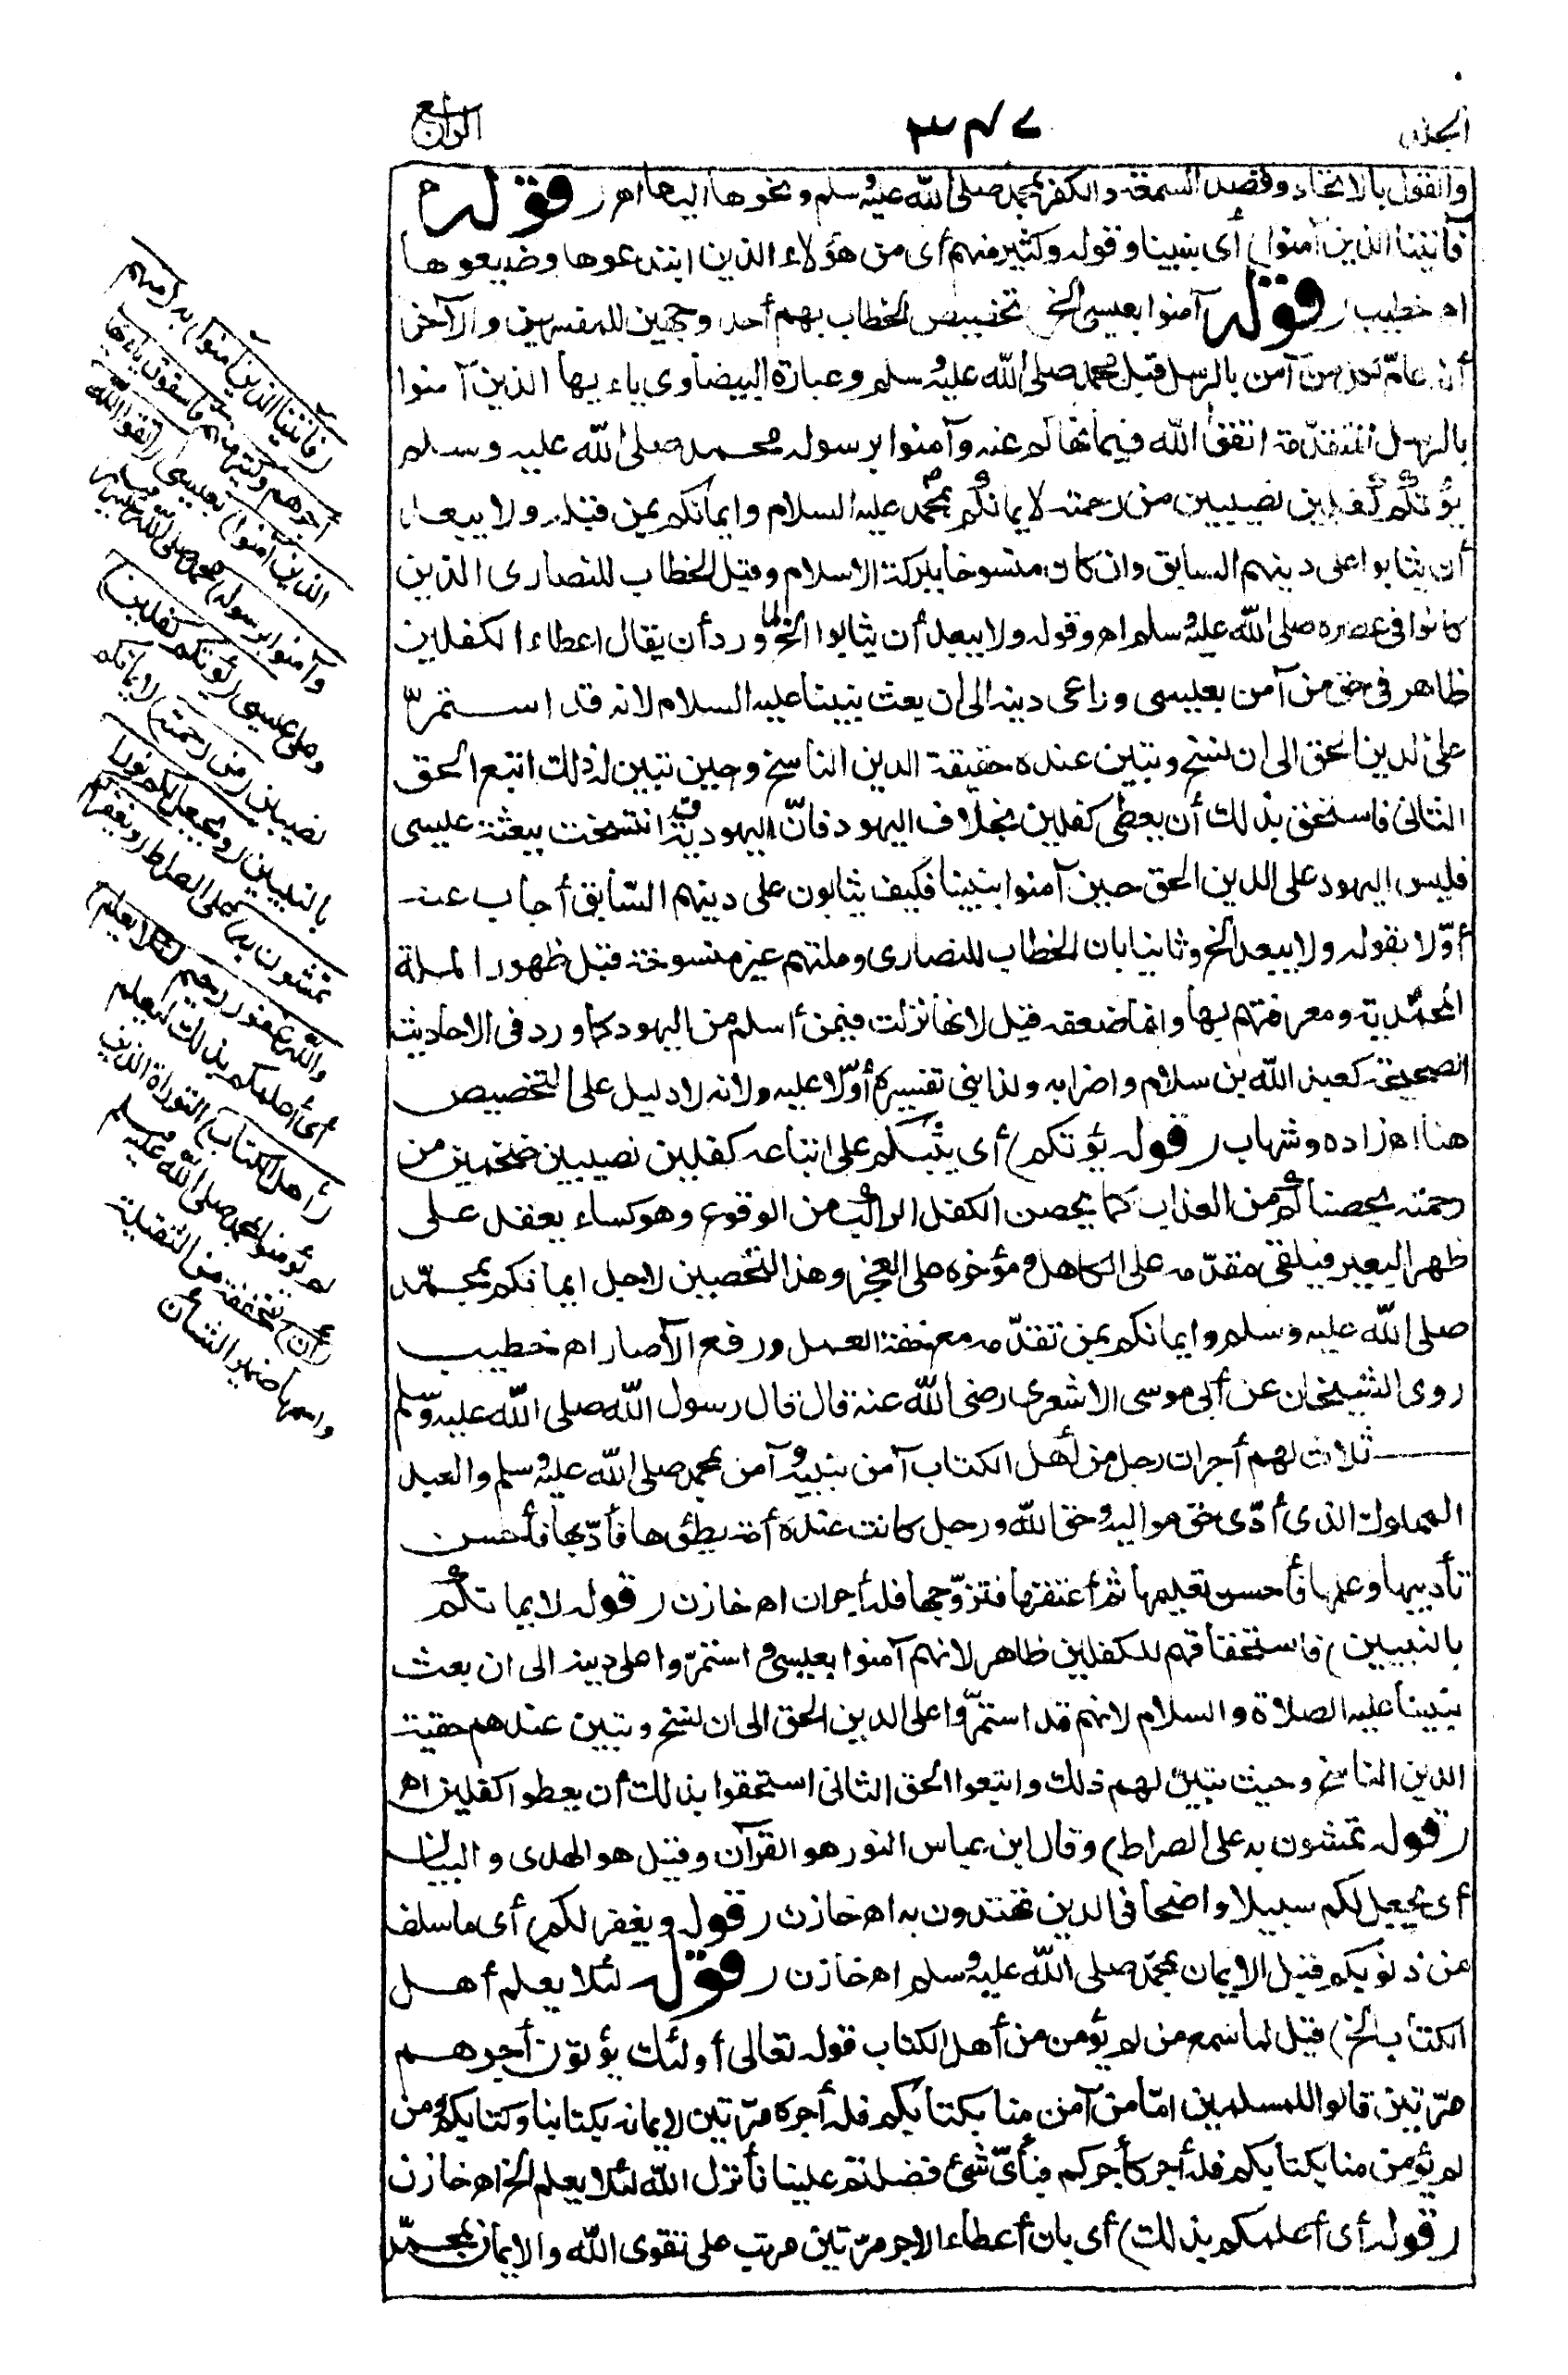 الجلد
٣٤٧
الرابع
والقول بالاتحاد وقصد السمعة والكفر بمحمد صلى الله عليه وسلم ونحوها اليها اهـ (قوله
فآتينا الذين آمنوا) أى بنبينا وقوله وكثير منهم أى من هؤلاء الذين ابتدعوها وضيعوها
اهـ خطيب (قوله آمنوا بعيسى الخ) تخصيص الخطاب بهم أحد وجهين للمفسرين والآخر
أنه عامّ لكل من آمن بالرسل قبل محمد صلى الله عليه وسلم وعبارة البيضاوى ياء يها الذين آمنوا
بالرسل المتقدّمة اتقوا الله فيما نهاكم عنه وآمنوا برسوله محمد صلى الله عليه وسلم
يؤتكم كفلين نصيبين من رحمته لايمانكم بمحمد عليه السلام وايمانكم بمن قبله ولا يبعد
أن يثابوا على دينهم السابق وان كان منسوخا ببركة الاسلام وقيل الخطاب للنصارى الذين
كانوا فى عصره صلى الله عليه وسلم اهـ وقوله ولا يبعد أن يثابوا الخ لما ورد أن يقال اعطاء الكفلين
ظاهر فى حق من آمن بعيسى وراعى دينه الى ان بعث نبينا عليه السلام لانه قد استمرّ
على الدين الحق الى ان نسخ وتبين عنده حقيقة الدين الناسخ وحين تبين له ذلك اتبع الحق
الثانى فاستحق بذلك أن يعطى كفلين بخلاف اليهود فانّ اليهودية قد انتسخت ببعثة عيسى
فليس اليهود على الدين الحق حين آمنوا بنبينا فكيف يثابون على دينهم السّابق أجاب عنه
أوّلا بقوله ولا يبعد الخ وثانيا بان الخطاب للنصارى وملتهم غير منسوخة قبل ظهور الملة
المحمّدية ومعرفتهم بها وانما ضعفه قيل لانها نزلت فيمن أسلم من اليهود كما ورد فى الاحاديث
الصحيحة كعبد الله بن سلام واضرابه ولذا بنى تفسيره أوّلا عليه ولانه لا دليل على التخصيص
هنا اهـ زاده وشهاب (قوله يؤتكم) أى يثبكم على اتباعه كفلين نصيبين ضخمين من
رحمته يحصنانكم من العذاب كما يحصن الكفل الراكب من الوقوع وهو كساء يعقد على
ظهر البعير فيلقى مقدّمه على الكاهل ومؤخره على العجز وهذا التحصين لاجل ايمانكم بمحمّد
صلى الله عليه وسلم وايمانكم بمن تقدّمه مع خفة العمل ورفع الآصار اهـ خطيب
روى الشيخان عن أبى موسى الاشعرى رضى الله عنه قال قال رسول الله صلى الله عليه وسلم
ثلاث لهم أجران رجل من أهل الكتاب آمن بنبيه وآمن بمحمد صلى الله عليه وسلم والعبد
المملوك الذى أدّى حق مواليه وحق الله ورجل كانت عنده أمة يطؤها فأدّبها فأحسن
تأديبها وعلمها فأحسن تعليمها ثم أعتقها فتزوّجها فله أجران اهـ خازن (قوله لايمانكم
بالنبيين) فاستحقاقهم للكفلين ظاهر لانهم آمنوا بعيسى واستمرّوا على دينه الى ان بعث
نبينا عليه الصلاة والسلام لانهم قد استمرّوا على الدين الحق الى ان نسخ وتبين عندهم حقية
الدين الناسخ وحيث تبين لهم ذلك واتبعوا الحق الثانى استحقوا بذلك أن يعطوا كفلين اهـ
(قوله تمشون به على الصراط) وقال ابن عباس النور هو القرآن وقيل هو الهدى والبيان
أى يجعل لكم سبيلا واضحا فى الدين تهتدون به اهـ خازن (قوله ويغفر لكم) أى ما سلف
من ذنوبكم قبل الايمان بمحمّد صلى الله عليه وسلم اهـ خازن (قوله لئلا يعلم أهل
الكتاب الخ) قيل لما سمع من لم يؤمن من أهل الكتاب قوله تعالى أولئك يؤتون أجرهم
مرّتين قالوا للمسلمين امّا من آمن منا بكتابكم فله أجره مرّتين لايمانه بكتابنا وكتابكم ومن
لم يؤمن منا بكتابكم فله أجر كأجركم فبأىّ شئ فضلتم علينا فأنزل الله لئلا يعلم الخ اهـ خازن
(قوله أى أعلمكم بذلك) أى بان أعطاء الاجر مرّتين مرتب على تقوى الله والايمان بمحمّد
(فآتينا الذين آمنوا) به (منهم
أجرهم وكثير منهم فاسقون ياءيها
الذين آمنوا) بعيسى (اتقوا الله
وآمنوا برسوله) محمد صلى الله عليه وسلم
وعلى عيسى (يؤتكم كفلين)
نصيبين (من رحمته) لايمانكم
بالنبيين (ويجعل لكم نورا
تمشون به) على الصراط (ويغفر لكم
والله غفور رحيم لئلا يعلم)
أى أعلمكم بذلك ليعلم
(أهل الكتاب) التوراة الذين
لم يؤمنوا بمحمد صلى الله عليه وسلم
(أن) مخففة من الثقيلة
واسمها ضمير الشأن